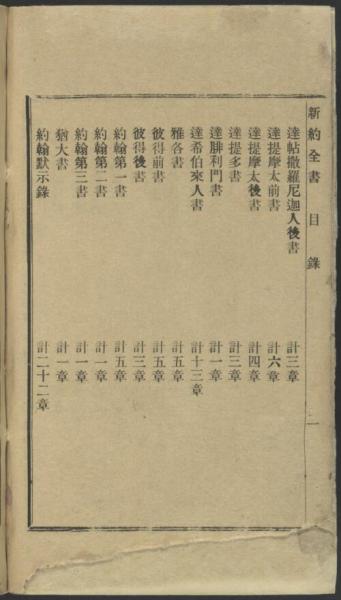 新約全書 目錄 一
達帖撒羅尼迦人後書 計三章
達提摩太前書 計六章
達提摩太後書 計四章
達提多書 計三章
達腓利門書 計一章
達希伯來人書 計十三章
雅各書 計五章
彼得前書 計五章
彼得後書 計三章
約翰第一書 計五章
約翰第二書 計一章
約翰第三書 計一章
猶大書 計一章
約翰默示錄 計二十二章